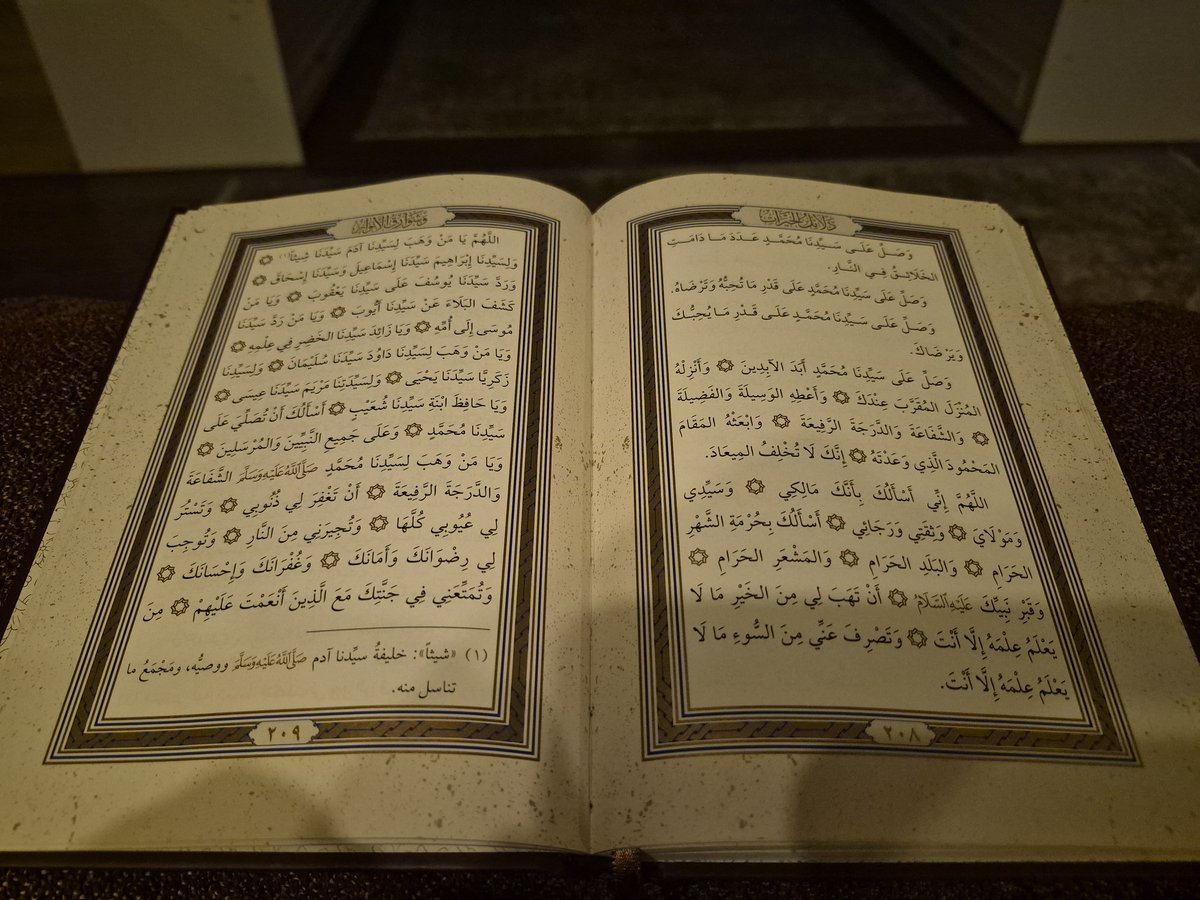 دلائل الخيرات
وَصَلِّ عَلَى سَيِّدِنَا مُحَمَّدٍ عَدَدَ مَا دَامَتِ
الخَلَائِقُ فِي النَّارِ.
وَصَلِّ عَلَى سَيِّدِنَا مُحَمَّدٍ عَلَى قَدْرِ مَا تُحِبُّهُ وَتَرْضَاهُ.
وَصَلِّ عَلَى سَيِّدِنَا مُحَمَّدٍ عَلَى قَدْرِ مَا يُحِبُّكَ
وَيَرْضَاكَ.
وَصَلِّ عَلَى سَيِّدِنَا مُحَمَّدٍ أَبَدَ الآبِدِينَ ۞ وَأَنْزِلْهُ
المُنْزَلَ المُقَرَّبَ عِنْدَكَ ۞ وَأَعْطِهِ الوَسِيلَةَ وَالفَضِيلَةَ
۞ وَالشَّفَاعَةَ وَالدَّرَجَةَ الرَّفِيعَةَ ۞ وَابْعَثْهُ المَقَامَ
المَحْمُودَ الَّذِي وَعَدْتَهُ ۞ إِنَّكَ لَا تُخْلِفُ المِيعَادَ.
اللَّهُمَّ إِنِّي أَسْأَلُكَ بِأَنَّكَ مَالِكِي ۞ وَسَيِّدِي
وَمَوْلَايَ ۞ وَثِقَتِي وَرَجَائِي ۞ أَسْأَلُكَ بِحُرْمَةِ الشَّهْرِ
الحَرَامِ ۞ وَالبَلَدِ الحَرَامِ ۞ وَالمَشْعَرِ الحَرَامِ ۞
وَقَبْرِ نَبِيِّكَ عَلَيْهِ السَّلَامُ ۞ أَنْ تَهَبَ لِي مِنَ الخَيْرِ مَا لَا
يَعْلَمُ عِلْمَهُ إِلَّا أَنْتَ ۞ وَتَصْرِفَ عَنِّي مِنَ السُّوءِ مَا لَا
يَعْلَمُ عِلْمَهُ إِلَّا أَنْتَ.
٢٠٨
وشوارق الأنوار
اللَّهُمَّ يَا مَنْ وَهَبَ لِسَيِّدِنَا آدَمَ سَيِّدَنَا شِيثاً(١) ۞
وَلِسَيِّدِنَا إِبْرَاهِيمَ سَيِّدَنَا إِسْمَاعِيلَ وَسَيِّدَنَا إِسْحَاقَ ۞
وَرَدَّ سَيِّدَنَا يُوسُفَ عَلَى سَيِّدِنَا يَعْقُوبَ ۞ وَيَا مَنْ
كَشَفَ البَلَاءَ عَنْ سَيِّدِنَا أَيُّوبَ ۞ وَيَا مَنْ رَدَّ سَيِّدَنَا
مُوسَى إِلَى أُمِّهِ ۞ وَيَا زَائِدَ سَيِّدِنَا الخَضِرِ فِي عِلْمِهِ ۞
وَيَا مَنْ وَهَبَ لِسَيِّدِنَا دَاوُدَ سَيِّدَنَا سُلَيْمَانَ ۞ وَلِسَيِّدِنَا
زَكَرِيَّا سَيِّدَنَا يَحْيَى ۞ وَلِسَيِّدَتِنَا مَرْيَمَ سَيِّدَنَا عِيسَى ۞
وَيَا حَافِظَ ابْنَةِ سَيِّدِنَا شُعَيْبٍ ۞ أَسْأَلُكَ أَنْ تُصَلِّيَ عَلَى
سَيِّدِنَا مُحَمَّدٍ ۞ وَعَلَى جَمِيعِ النَّبِيِّينَ وَالمُرْسَلِينَ ۞
وَيَا مَنْ وَهَبَ لِسَيِّدِنَا مُحَمَّدٍ صَلَّى اللَّهُ عَلَيْهِ وَسَلَّمَ الشَّفَاعَةَ
وَالدَّرَجَةَ الرَّفِيعَةَ ۞ أَنْ تَغْفِرَ لِي ذُنُوبِي ۞ وَتَسْتُرَ
لِي عُيُوبِي كُلَّهَا ۞ وَتُجِيرَنِي مِنَ النَّارِ ۞ وَتُوجِبَ
لِي رِضْوَانَكَ وَأَمَانَكَ ۞ وَغُفْرَانَكَ وَإِحْسَانَكَ ۞
وَتُمَتِّعَنِي فِي جَنَّتِكَ مَعَ الَّذِينَ أَنْعَمْتَ عَلَيْهِمْ ۞ مِنَ
(١) «شيثاً»: خليفةُ سيِّدنا آدم صَلَّى اللَّهُ عَلَيْهِ وَسَلَّمَ ووصيُّه، ومَجْمَعُ ما
تناسل منه.
٢٠٩